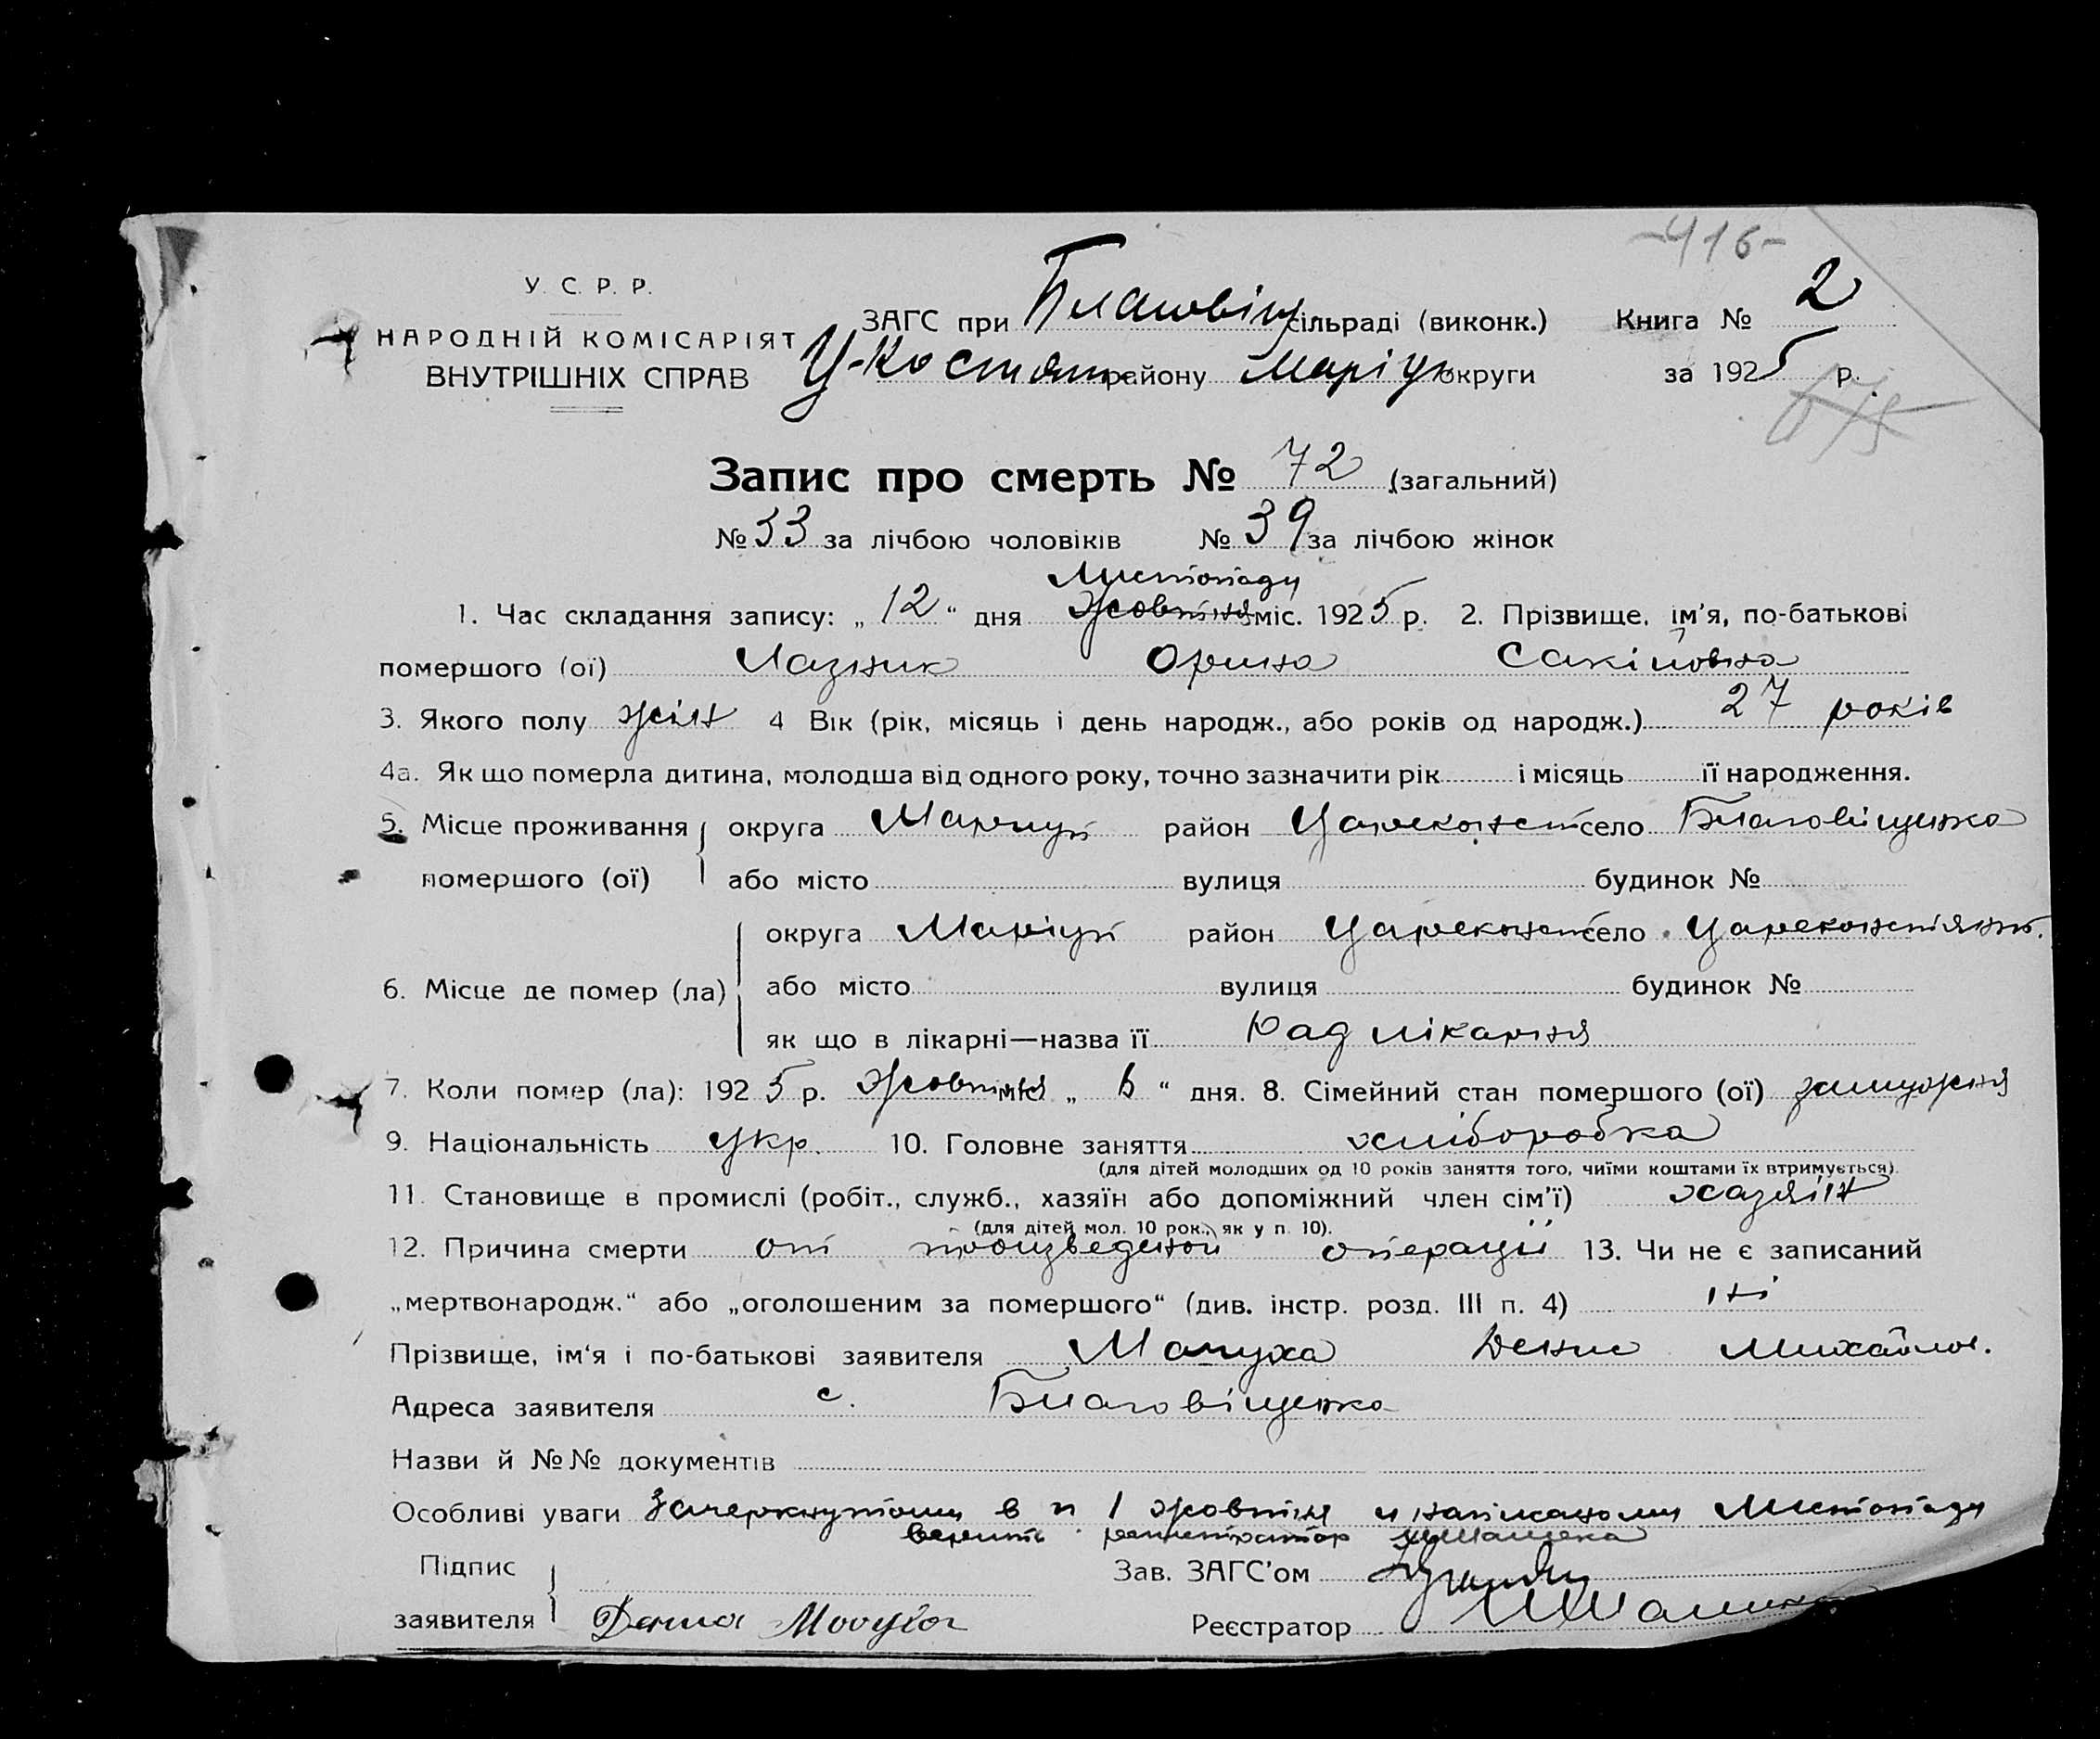 -416-
У. С. Р. Р.
НАРОДНІЙ КОМІСАРІЯТ
ВНУТРІШНІХ СПРАВ
ЗАГС при Благовіщ сільраді (виконк.) Книга № 2
Ц-Костян району Маріуп округи за 1925 р.
Запис про смерть № 72 (загальний)
№ 33 за лічбою чоловіків № 39 за лічбою жінок
Листопаду
1. Час складання запису: „ 12 “ дня Жовтня міс. 1925 р. 2. Прізвище, ім’я, по-батькові
помершого (ої) Лазник Орина
3. Якого полу жін 4 Вік (рік, місяць і день народж., або років од народж.) 27 років
4а. Як що померла дитина, молодша від одного року, точно зазначити рік і місяць її народження.
5. Місце проживання округа Мариуп район Цареконст село Благовіщенка
помершого (ої) або місто вулиця будинок №
округа Маріуп район Цареконст село Цареконстянт.
6. Місце де помер (ла) або місто вулиця будинок №
як що в лікарні—назва її Рад лікарня
7. Коли помер (ла): 1925 р. Жовтня міс. „ “ дня. 8. Сімейний стан помершого (ої) замужня
9. Національність Укр. 10. Головне заняття хліборобка
(для дітей молодших од 10 років заняття того, чиїми коштами їх втримується).
11. Становище в промислі (робіт., служб., хазяїн або допоміжний член сім’ї) хазяїн
(для дітей мол. 10 рок., як у п. 10).
12. Причина смерти от произведеной операції 13. Чи не є записаний
„мертвонародж.“ або „оголошеним за помершого“ (див. інстр. розд. III п. 4) ні
Прізвище, ім‘я і по-батькові заявителя Денис Михайлов.
Адреса заявителя с. Благовіщенка
Назви й №№ документів
Особливі уваги Зачеркнутому в п 1 жовтня и написаному Листопаду
верить регистратор
Підпис Зав. ЗАГС’ом
заявителя Реєстратор